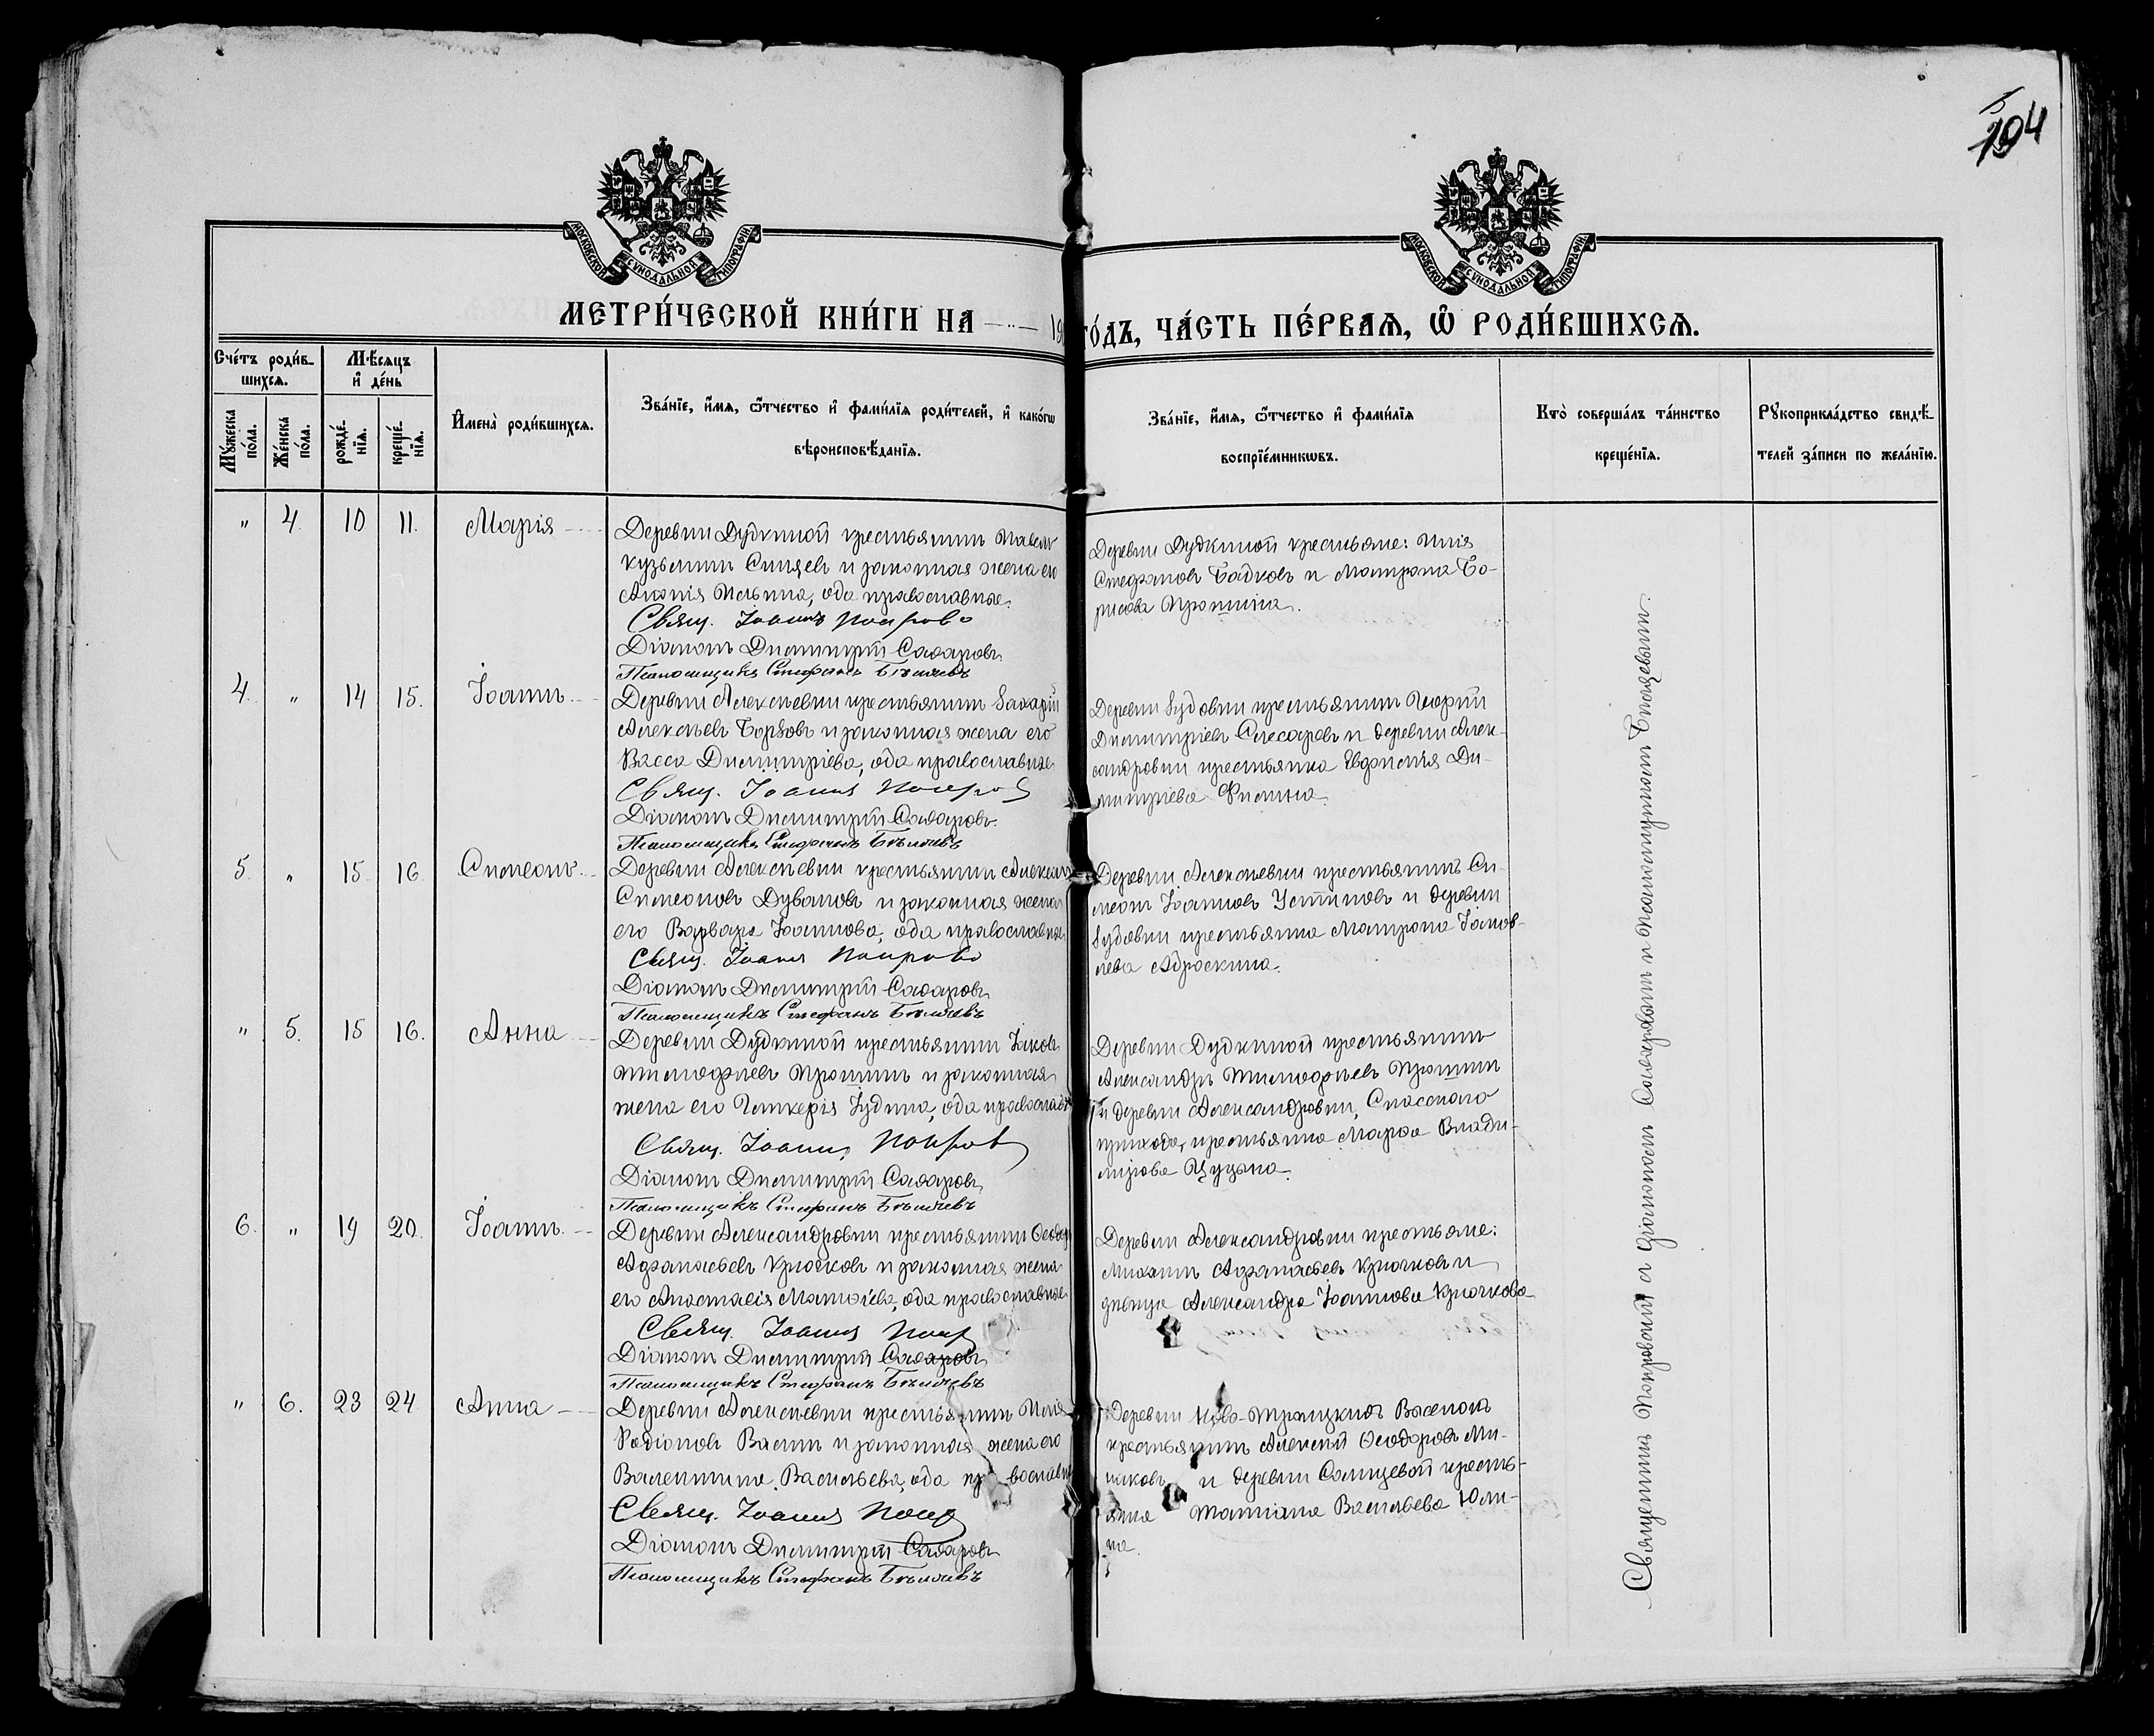 194
МОСКОВСКОЙ СѴНОДАЛЬНОЙ ТИПОГРАФІИ.
МОСКОВСКОЙ СѴНОДАЛЬНОЙ ТИПОГРАФІИ.
МЕТРИ́ЧЕСКОЙ КНИ́ГИ НА
ГО́ДЪ, ЧА́СТЬ ПЕ́РВАѦ, Ѽ РОДИ́ВШИХСѦ.
Сче́тъ роди́в-
шихсѧ.
Мѣ́сѧцъ
и҆ де́нь
Мꙋжеска по́ла.
Же́нска по́ла.
рожде́-
нїѧ.
креще́-
нїѧ.
И҆мена̀ роди́вшихсѧ.
Зва́нїе, и҆́мѧ, ѻ҆́тчество и҆ фами́лїѧ роди́телей, и҆ како́гѡ
вѣроисповѣ́данїѧ.
Зва́нїе, и҆́мѧ, ѻ҆́тчество и҆ фами́лїѧ
воспрїе́мникѡвъ.
Кто̀ соверша́лъ та́инство
креще́нїѧ.
Рꙋкоприкла́дство свидѣ́-
телей за́писи по жела́нїю.
" 4. 10 11. Марія
Деревни Дудкиной крестьянинъ Павелъ
Кузьминъ Синцевъ и законная жена его
Ильина, оба православные.
Свящ. Іоаннъ Покровс
Діаконъ Димитрій Сахаровъ
Псаломщикъ Стефанъ Бѣляевъ
Деревни Дудкиной крестьяне: Илія
Стефановъ Бадковъ и Матрона Бо-
рисова Прошина.
4. " 14 15. Іоаннъ
Деревни Алексѣевки крестьянинъ Захарій
Алексѣевъ Борзовъ и законная жена его
Васса Димитріева, оба православные
Свящ. Іоаннъ Покров
Діаконъ Димитрій Сахаровъ.
Псаломщикъ Стефанъ Бѣляевъ
Деревни Зудовки крестьянинъ Георгій
Димитріевъ Слесаревъ и деревни Алек-
сандровки крестьянка Евфимія Ди-
митріева Филина.
5. " 15 16 Симеонъ
Деревни Алексѣевки крестьянинъ Алексѣй
Симеоновъ Дувановъ и законная жена
его Варвара Іоаннова, оба православные
Свящ. Іоаннъ Покровс
Діаконъ Димитрій Сахаровъ
Псаломщикъ Стефанъ Бѣляевъ
Деревни Алексѣевки крестьянинъ Си-
меонъ Іоанновъ Устиновъ и деревни
Зудовки крестьянка Матрона Іаков-
лева Аброскина.
" 5. 15 16. Анна
Деревни Дудкиной крестьянинъ Іаковъ
Тимофѣевъ Прошинъ и законная
жена его Гликерія Іудина, оба православн
Свящ. Іоаннъ Покров
Діаконъ Димитрій Сахаровъ
Псаломщикъ Стефанъ Бѣляевъ
Деревни Дудкиной крестьянинъ
Александръ Тимофѣевъ Прошинъ
и деревни Александровки, Спасскаго
прихода, крестьянка Марѳа Влади-
мірова Цуцына.
6. " 19 20. Іоаннъ
Деревни Александровки крестьянинъ Ѳеодоръ
Афанасьевъ Крючковъ и законная жена
его Анастасія Матѳіева, оба православные
Свящ. Іоаннъ Покр
Діаконъ Димитрій Сахаровъ
Псаломщикъ Стефанъ Бѣляевъ
Деревни Александровки крестьяне:
Михаилъ Афанасьевъ Крючковъ и
дѣвица Александра Іоаннова Крючкова
" 6. 23 24 Анна
Деревни Алексѣевки крестьянинъ Илія
Родіоновъ и законная жена его
Валентина Васильева, оба пр вославн
Свящ. Іоаннъ Покр
Діаконъ Димитрій Сахаровъ
Псаломщикъ Стефанъ Бѣляевъ
Деревни Ново-Троицкихъ Выселокъ
крестьянинъ Алексѣй Ѳеодоровъ Ми-
и деревни Солнцевой кресть-
янка Татіана Васильева Юли-
на.
Священникъ Покровскій съ діакономъ Сахаровымъ и псаломщикомъ Бѣляевымъ.